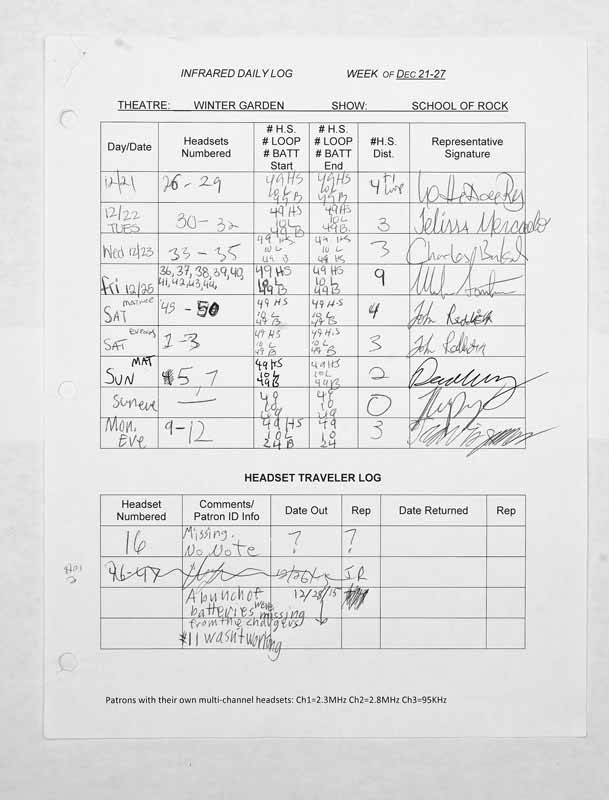 INFRARED DAILY LOG WEEK OF DEC 21-27
THEATRE: WINTER GARDEN SHOW: SCHOOL OF ROCK
Day/Date Headsets Numbered # H.S. # LOOP # BATT Start # H.S. # LOOP # BATT End #H.S. Dist. Representative Signature
12/21 26-29 49HS 10L 49B 49HS 10L 49B 4 +1 loop
12/22 TUES 30-32 49HS 10L 49B 49HS 10L 49B 3 Jelissa Mercado
Wed 12/23 33-35 49HS 10L 49B 49HS 10L 49B 3 Charles
Fri 12/25 36, 37, 38, 39, 40, 41, 42, 43, 44, 49HS 10L 49B 49HS 10L 49B 9
SAT matinee 45-50 49HS 10L 49B 49HS 10L 49B 4 John
SAT evening 1-3 49HS 10L 49B 49H.S 10L 49B 3 John
SUN MAT 5, 7 49HS 10L 49B 49HS 10L 49B 2
Sun eve — 49 10 49 49 10 49 0
Mon. Eve 9-12 49HS 10L 24B 49 10 24 3
HEADSET TRAVELER LOG
Headset Numbered Comments/ Patron ID Info Date Out Rep Date Returned Rep
16 Missing. No Note ? ?
46-47 12/26 J.R
A bunch of batteries were missing from the chargers 12/28/15
#11 wasn't working
Patrons with their own multi-channel headsets: Ch1=2.3MHz Ch2=2.8MHz Ch3=95KHz